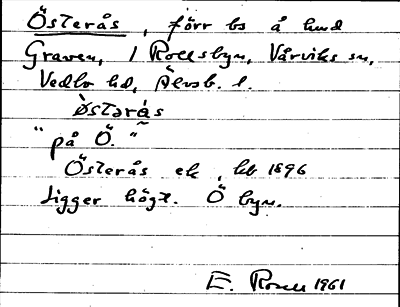 Österås, förr bs å hmd
Graven, 1 Rollsbyn, Vårviks sn,
Vedbo hd, Älvsb. l.
Østərás
"på Ö."
Österås ek, hb 1896
Ligger högt. Ö byn.
E. Rosell 1961